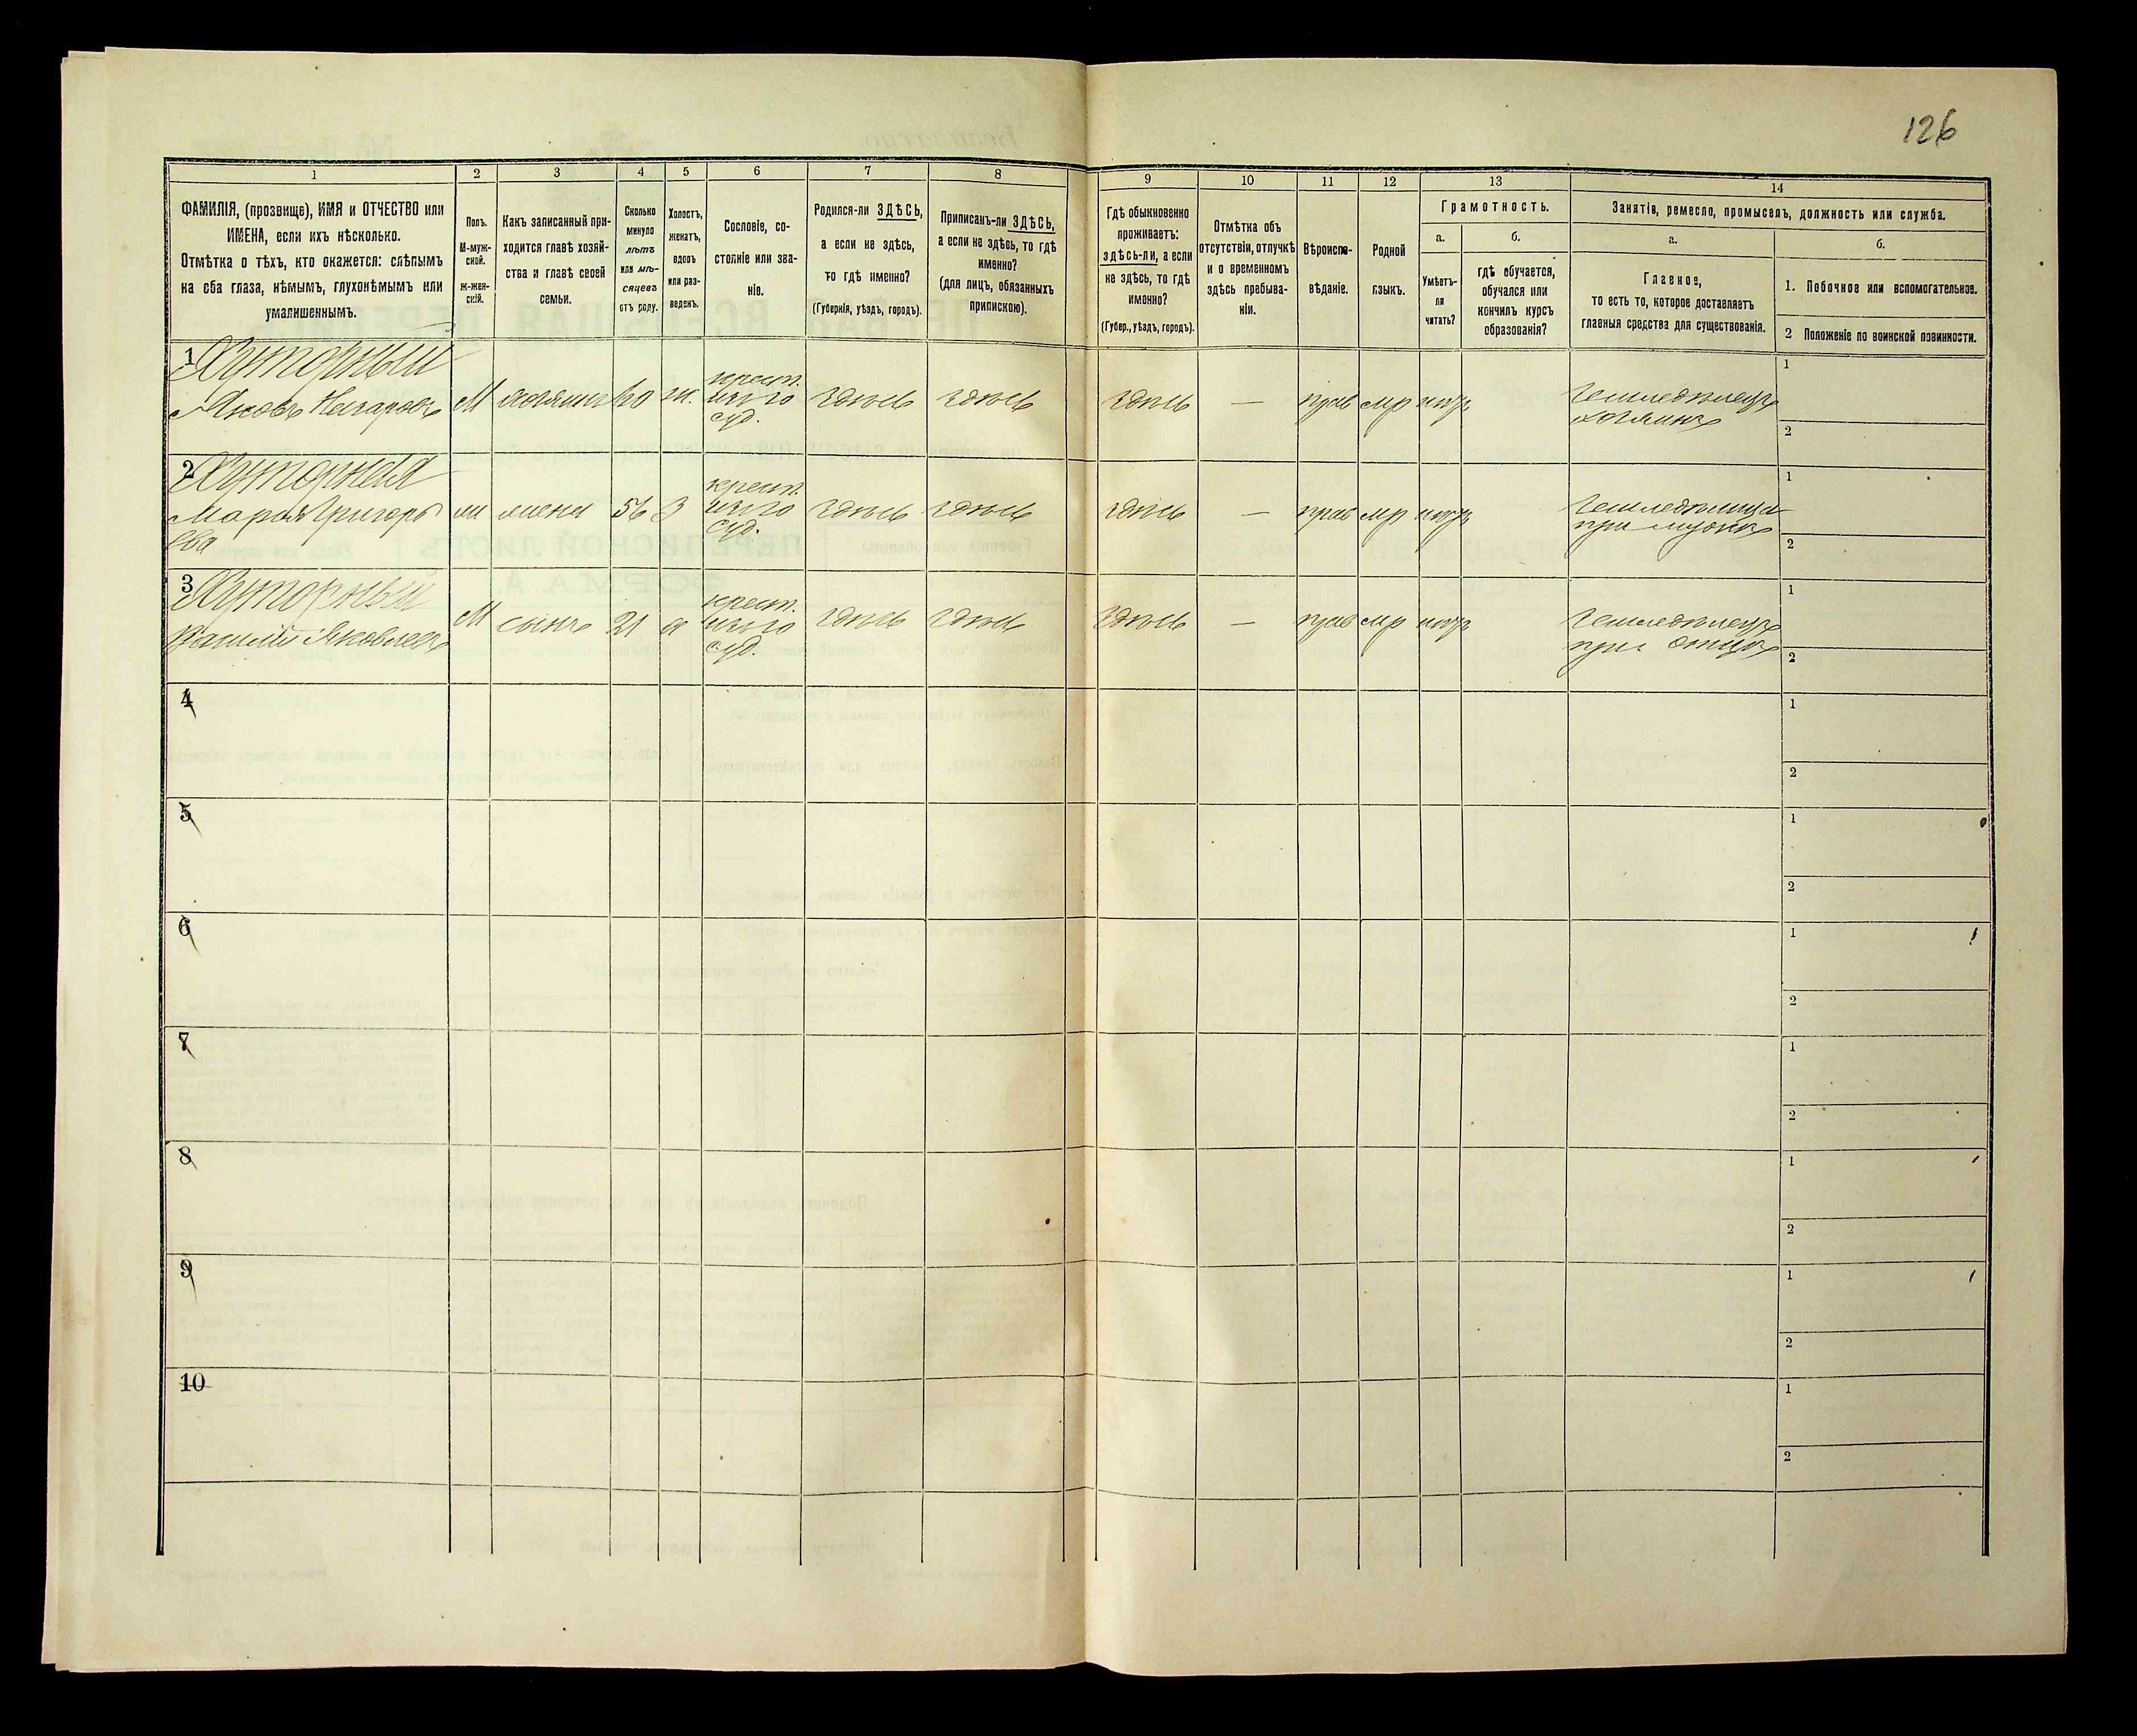 126
1 2 3 4 5 6 7 8 9 10 11 12 13 14
ФАМИЛІЯ, (прозвище), ИМЯ и ОТЧЕСТВО или
ИМЕНА, если ихъ нѣсколько.
Отмѣтка о тѣхъ, кто окажется: слѣпымъ
на оба глаза, нѣмымъ, глухонѣмымъ или
умалишеннымъ.
Полъ.
М-муж-
ской.
ж-жен-
скій.
Какъ записанный при-
ходится главѣ хозяй-
ства и главѣ своей
семьи.
Сколько
минуло
лѣтъ
или мѣ-
сяцевъ
отъ роду.
Холостъ,
женатъ,
вдовъ
или раз-
веденъ.
Сословіе, со-
стояніе или зва-
ніе.
Родился-ли ЗДѢСЬ,
а если не здѣсь,
то гдѣ именно?
(Губернія, уѣздъ, городъ).
Приписанъ-ли ЗДѢСЬ,
а если не здѣсь, то гдѣ
именно?
(для лицъ, обязанныхъ
припискою).
Гдѣ обыкновенно
проживаетъ:
здѣсь-ли, а если
не здѣсь, то гдѣ
именно?
(Губер., уѣздъ, городъ).
Отмѣтка объ
отсутствіи, отлучкѣ
и о временномъ
здѣсь пребыва-
ніи.
Вѣроиспо-
вѣданіе.
Родной
языкъ.
Грамотность.
а.
Умѣетъ-
ли
читать?
б.
гдѣ обучается,
обучался или
кончилъ курсъ
образованія?
Занятіе, ремесло, промыселъ, должность или служба.
а.
Главное,
то есть то, которое доставляетъ
главныя средства для существованія.
б.
1. Побочное или вспомогательное.
2 Положеніе по воинской повинности.
1 Хуторный
Яковъ Назаровъ М хозяинъ 60 ж. крест. здѣсь здѣсь здѣсь — прав мр нѣтъ Земледѣлецъ
хозяинъ
1
2
2 Хуторная
Марія Григорь
ева
жена 56 З крест. здѣсь здѣсь здѣсь — прав мр нѣтъ Земледѣлица
при мужѣ
1
2
3 Хуторный
Яковлевъ М сынъ 21 х крест. здѣсь здѣсь здѣсь — прав мр нѣтъ Земледѣлецъ
при отцѣ
1
2
4
1
2
5
1
2
6
1
2
7
1
2
8
1
2
9
1
2
10
1
2